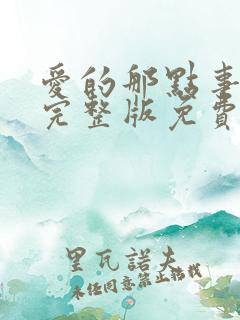 愛的那點事
完整版免費
里瓦諾夫
未经同意禁止转载